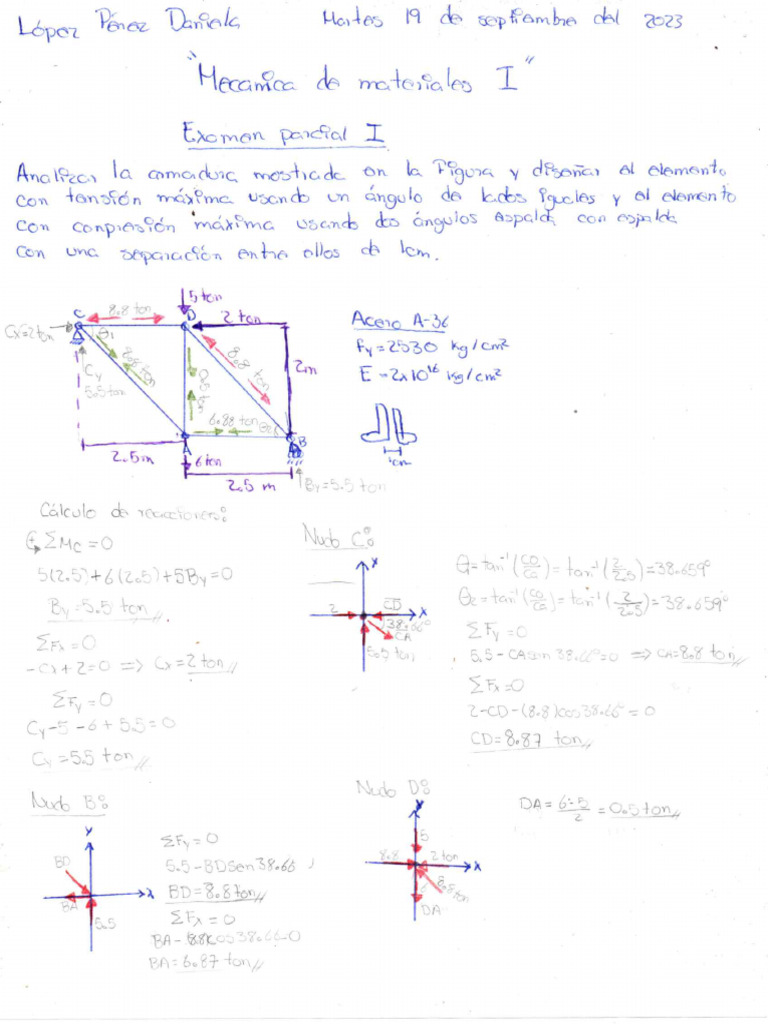 López Pérez Daniela Martes 19 de septiembre del 2023
"Mecanica de materiales I"
Examen parcial I
Analizar la armadura mostrada en la Figura y diseñar el elemento
con tensión máxima usando un ángulo de lados iguales y el elemento
con conpresión máxima usando dos ángulos espalda con espalda
con una separación entre ellos de 1cm.
5 ton
C 8.8 ton D 2 ton
Cx=2 ton
θ1
8.8 ton
8.8 ton
2m
Cy
5.5 ton
0.5 ton
6.88 ton
θ2
A
B
2.5 m
6 ton
2.5 m
By=5.5 ton
Acero A-36
Fy=2530 kg/cm²
E=2x10¹⁶ kg/cm²
1cm
Cálculo de reacciones:
ΣMc=0
5(2.5)+6(2.5)+5By=0
By=5.5 ton
ΣFx=0
-Cx+2=0 => Cx=2 ton
ΣFy=0
Cy-5-6+5.5=0
Cy=5.5 ton
Nudo C:
x
2
CD
x
38.66°
CA
5.5 ton
=tan⁻¹(2/2.5)=38.659°
=tan⁻¹(2/2.5)=38.659°
ΣFy=0
5.5-CAsen 38.66°=0 => CA=8.8 ton
ΣFx=0
2-CD-(8.8)cos38.66°=0
CD=8.87 ton
Nudo B:
y
BD
x
BA
5.5
ΣFy=0
5.5-BDsen38.66
BD=8.8 ton
ΣFx=0
BA-8.8cos38.66=0
BA=6.87 ton
Nudo D:
y
5
8.8
2 ton
x
6
8.8 ton
DA
DA=6-5/2=0.5 ton